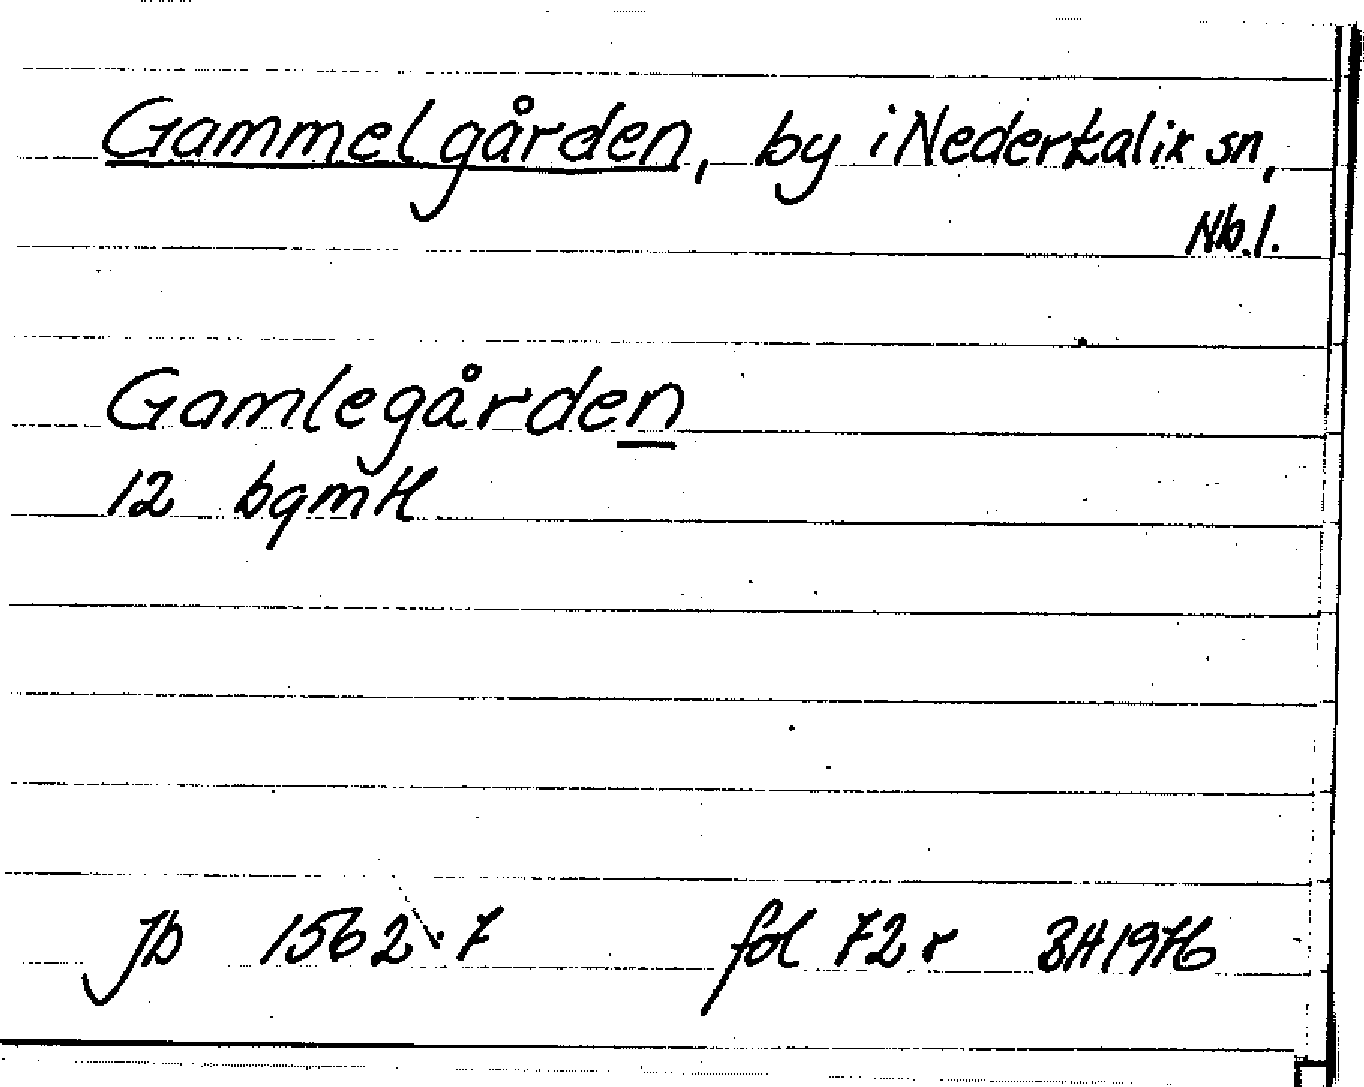 Gammelgården, by i Nederkalix sn,
Nb.l.
Gamlegården
12 bgmtl
Jb 1562:7 fol 72 r BH 1976